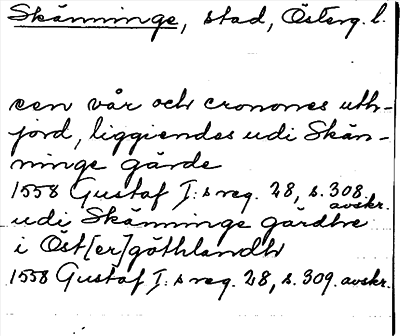 Skänninge, stad, Österg. l.
een vår och cronones uth-
jord, liggiendes udi Skän-
ninge gärde
1558 Gustaf I:s reg. 28, s. 308 avskr.
udi Skänninge gärdhe
i Öst[er]göthlandh
1558 Gustaf I:s reg. 28, s. 309. avskr.